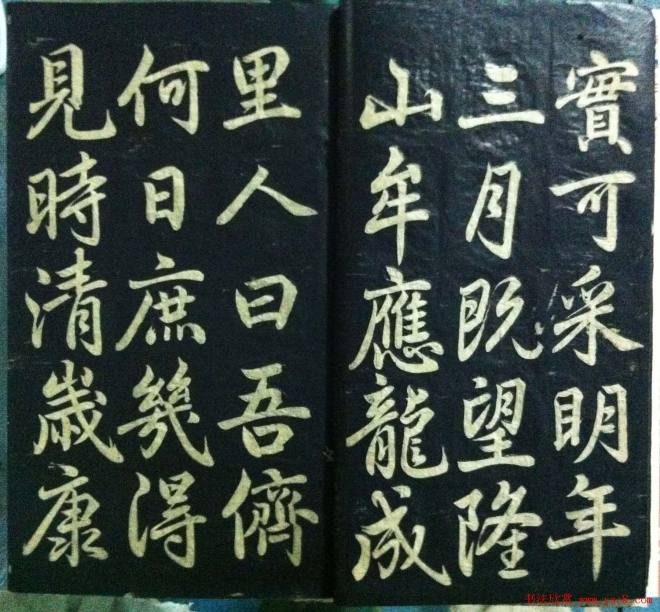 實可采明年
三月既望隆
山牟應龍成
里人曰吾儕
何日庶幾得
見時清歲康
书法欣赏 www.yac8.com